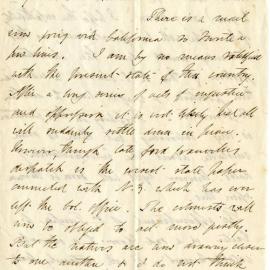 There is a mail
now going via California so I write a
few lines. I am by no means satisfied
with the present state of this country.
After a long series of acts of injustice
and oppression it is not likely that all
will suddenly settle down in peace.
However, though late Lord Granville's
dispatch is the wisest state paper
connected with N Z which has ever
left the Col. office. The colonists will
now be obliged to act more justly.
But the natives are now drawing closer
to one another & I do not think